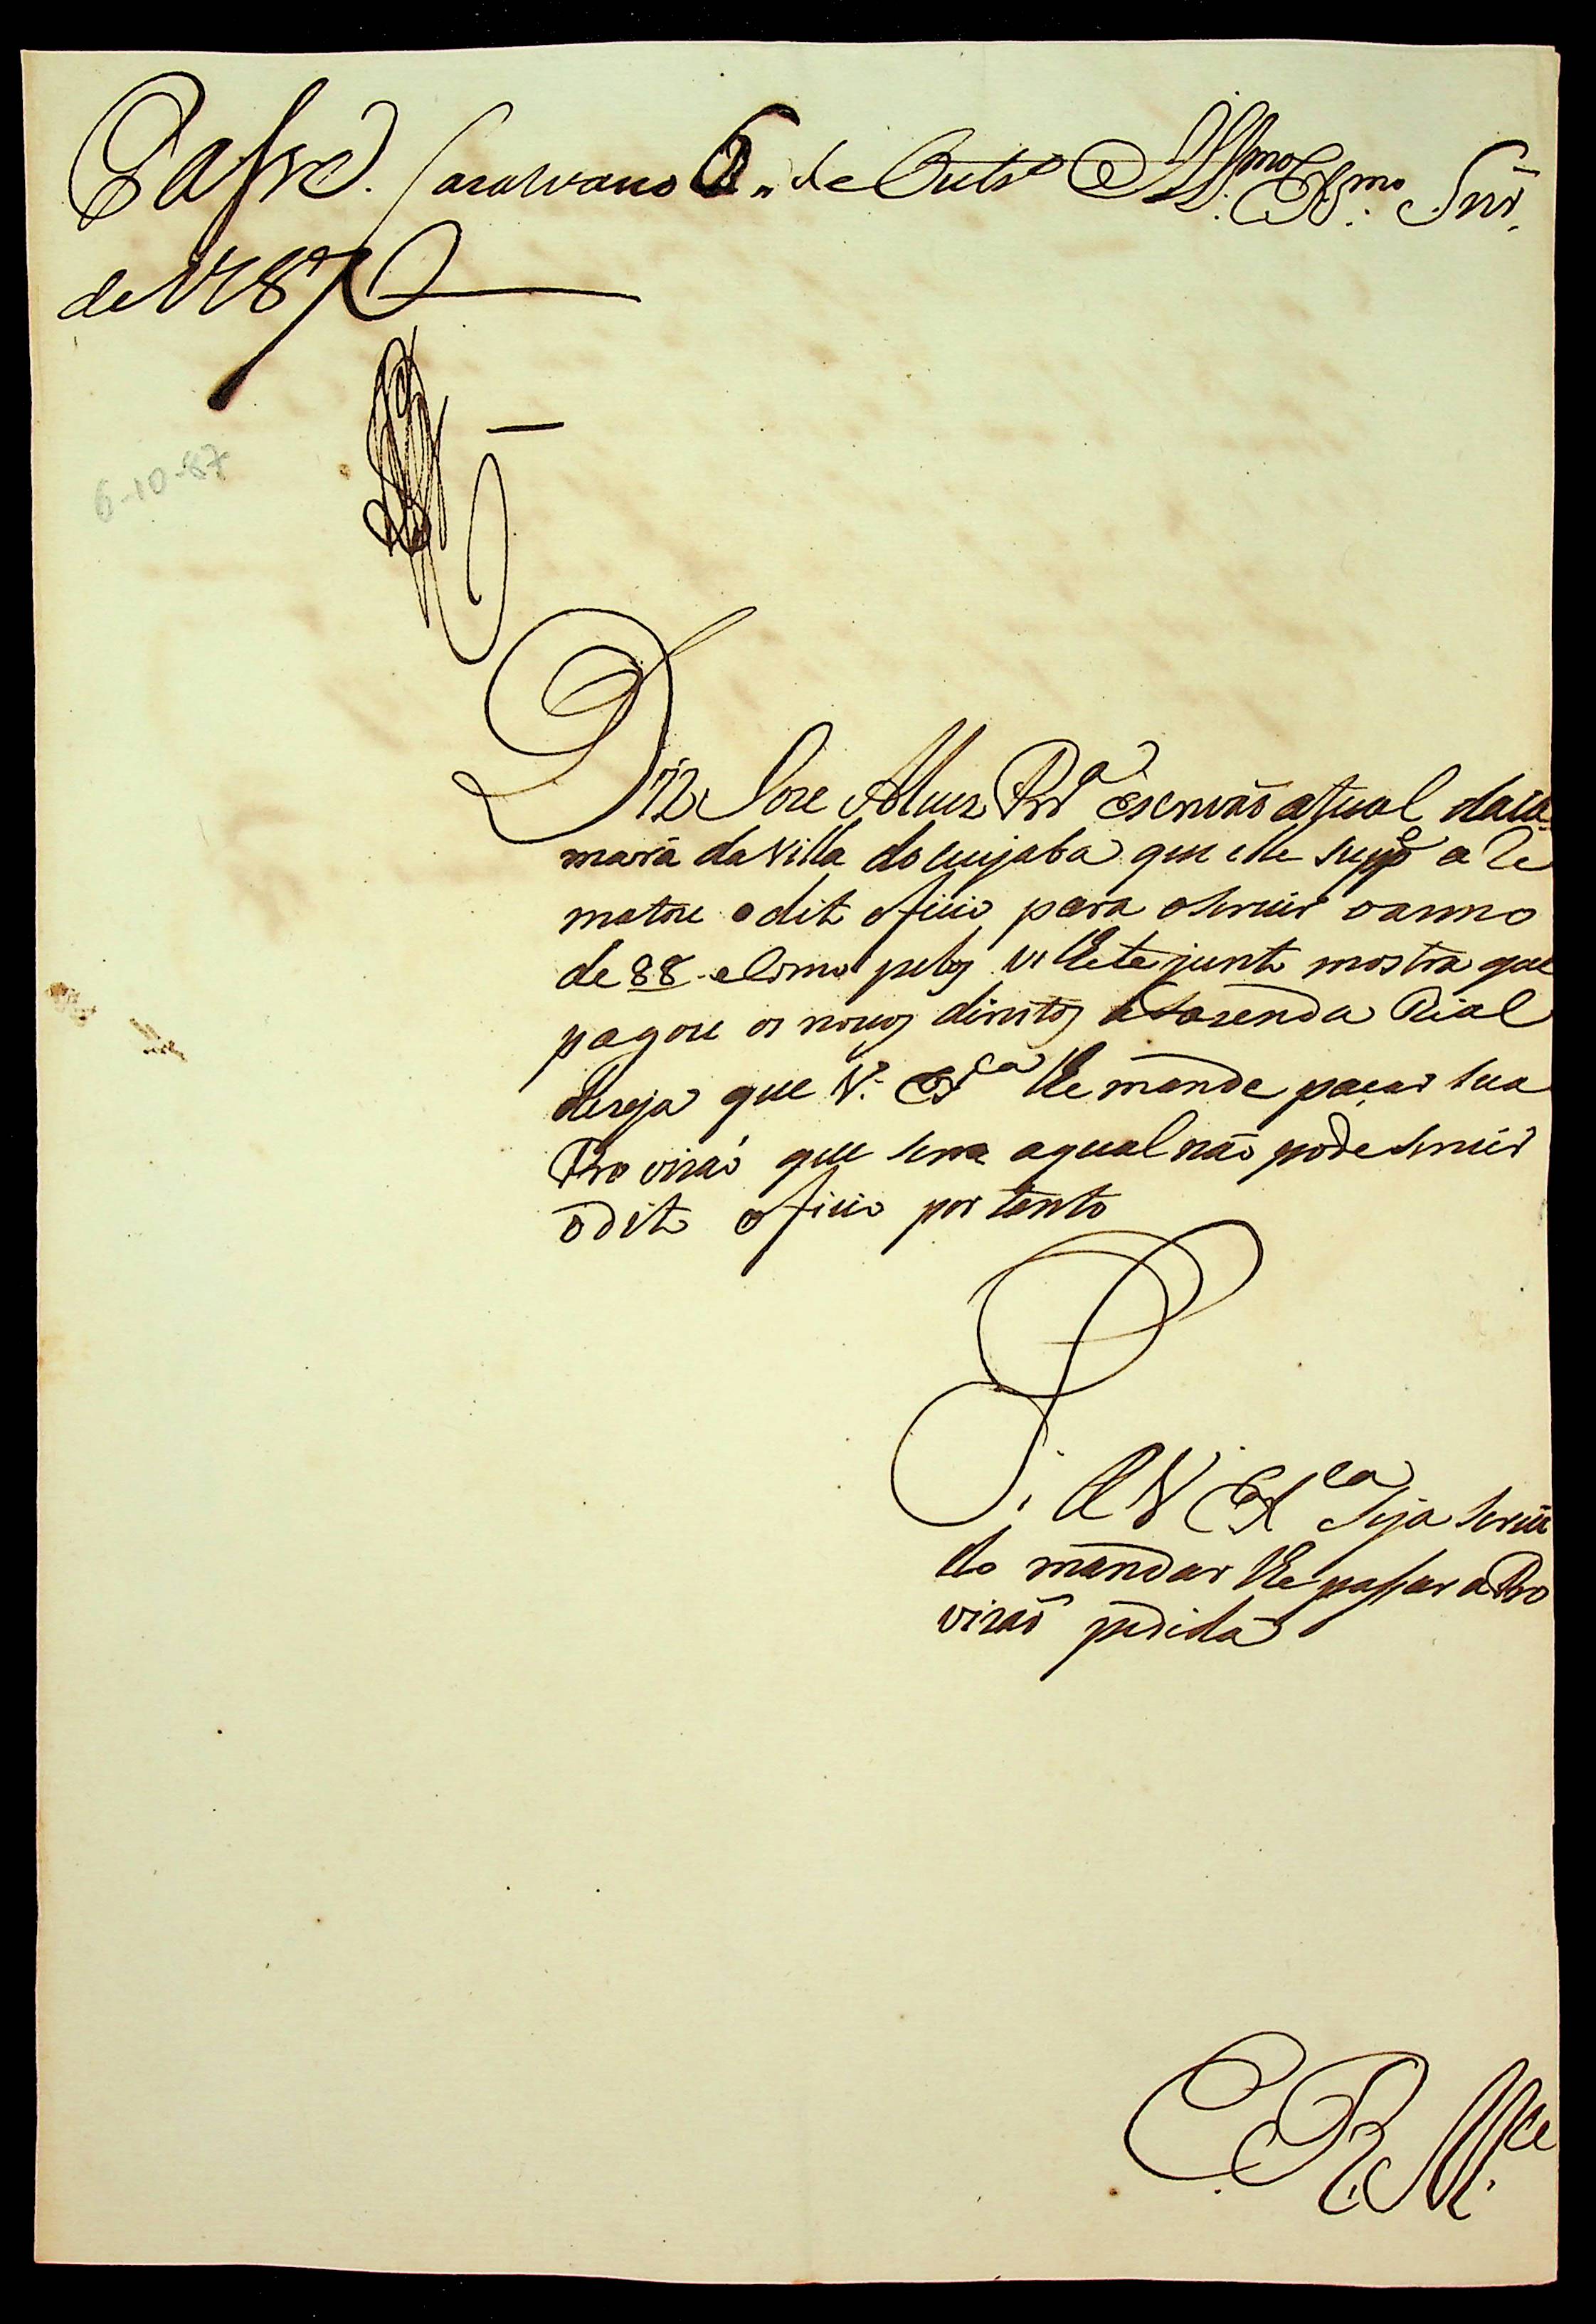 Passe. Casalvasco 6 de Outbro Illmo. Exmo. Snr.
de 1787
6-10-87
Diz Jose Alues Prª escrivaõ atual daca
mara da Villa do cuijaba que elle suppº aRe
matou o dito oficio para o servir o anno
de 88 e como pelos vilhete junto mostra que
pagou os nouos direitos a fazenda Rial
deseja que V. Exca lhe mande paçar sua
Provizaõ que sem aqual naõ pode servir
o dito oficio por tanto
P. A V Exca Seja servi
do mandar lhe passar a Pro
vizaõ pedida
E. R. Mce